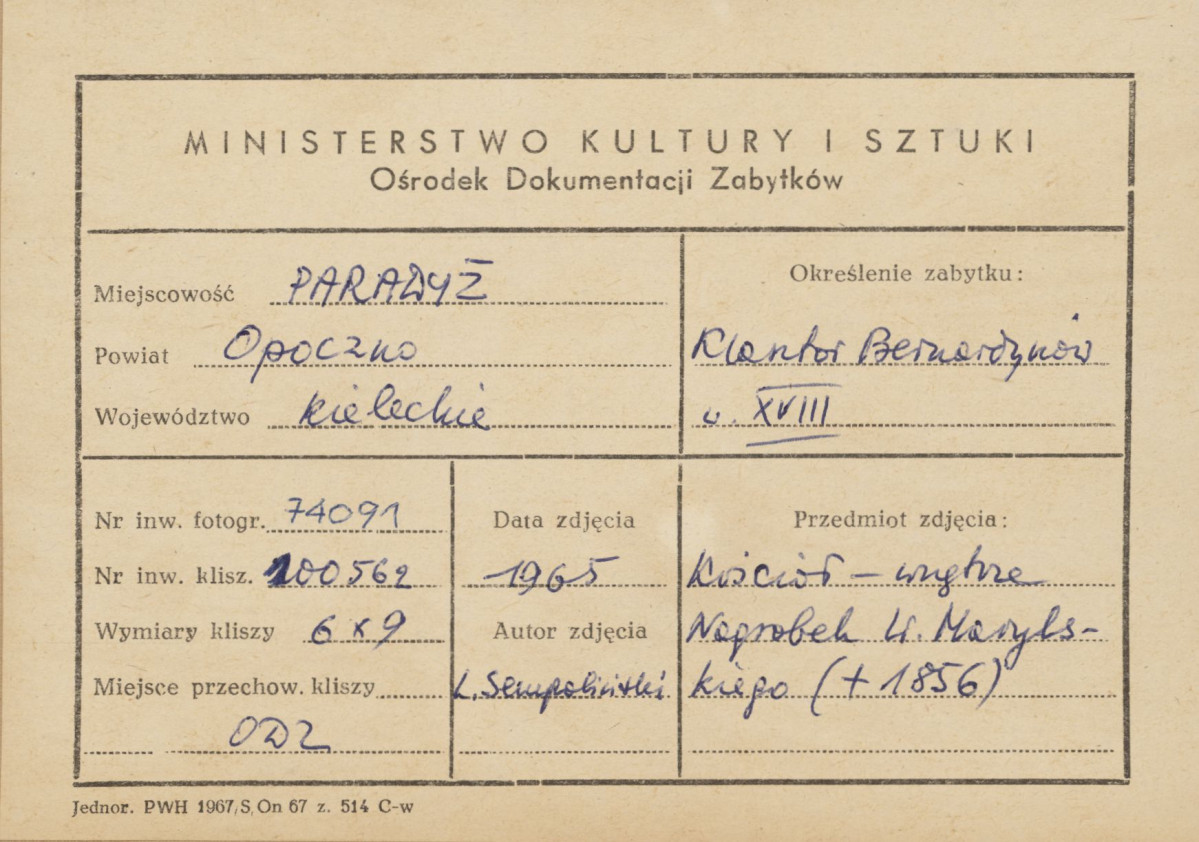 MINISTERSTWO KULTURY I SZTUKI
Ośrodek Dokumentacji Zabytków
Miejscowość PARADYŻ
Powiat Opoczno
Województwo kieleckie
Określenie zabytku:
Klasztor Bernardynów
w. XVIII
Nr inw. fotogr. 74091
Nr inw. klisz. 100562
Wymiary kliszy 6x9
Miejsce przechow. kliszy
ODZ
Data zdjęcia
1965
Autor zdjęcia
L. Sempoliński
Przedmiot zdjęcia:
Kościół – wnętrze
Nagrobek W. Maryls-
kiego (+ 1856)
Jednor. PWH 1967/S, On 67 z. 514 C-w